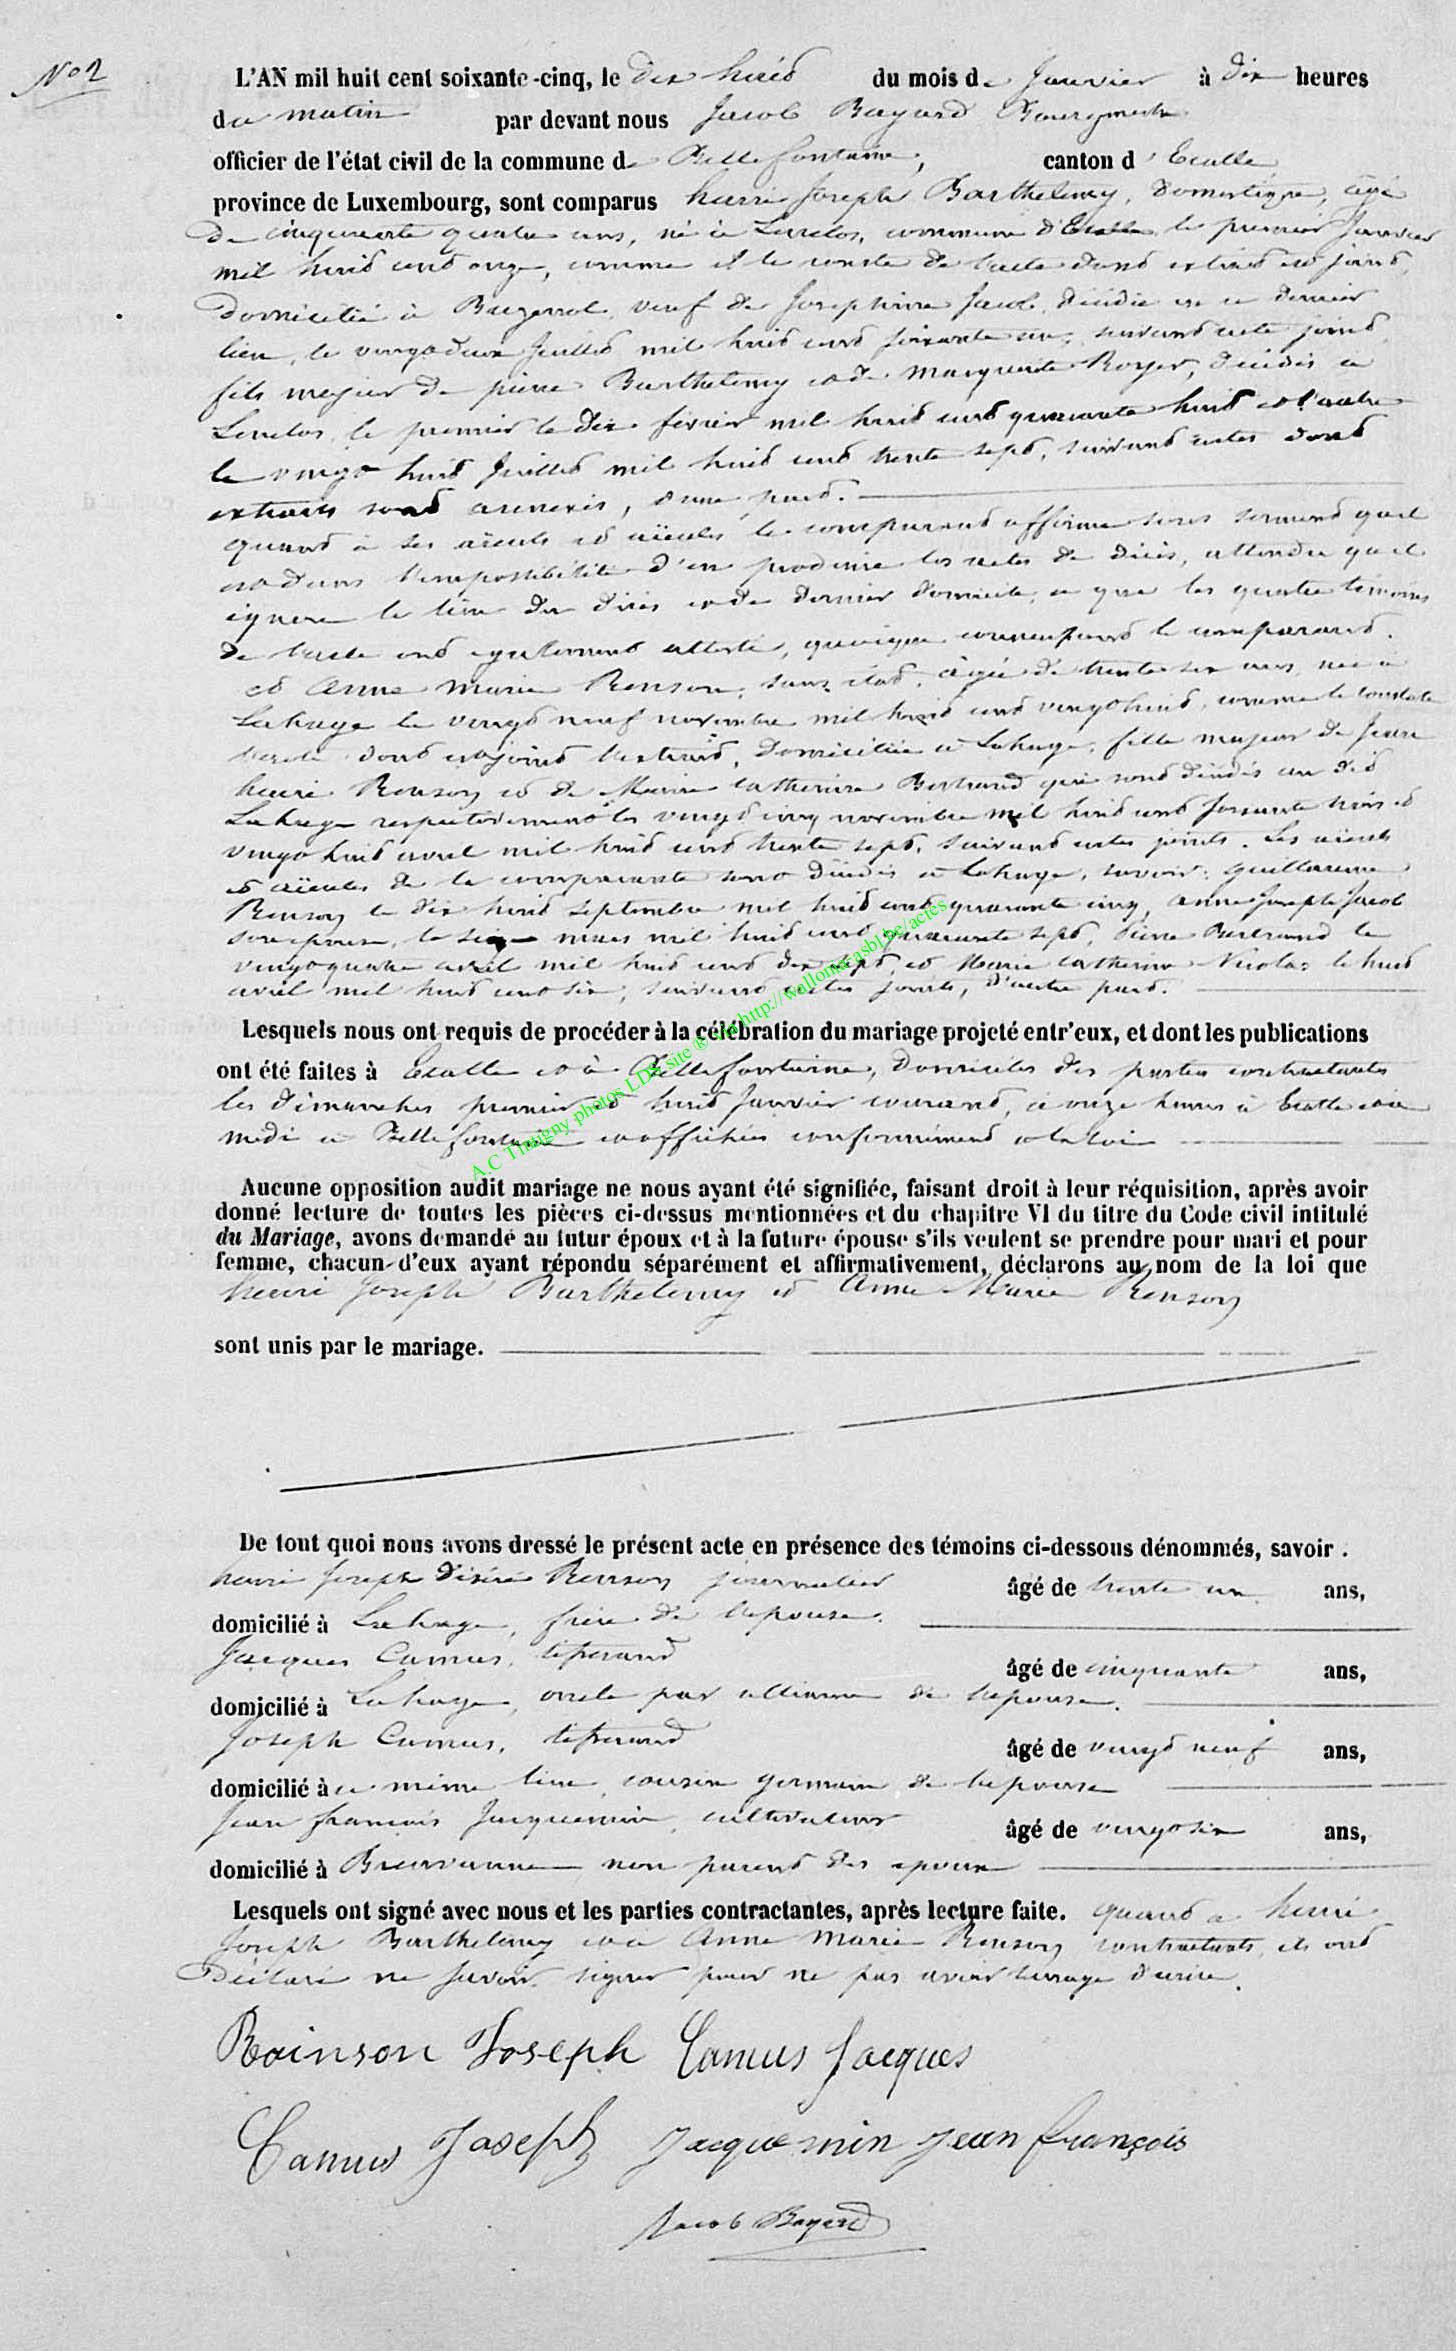 N° 2
L'AN mil huit cent soixante-cinq, le dix huit du mois de Janvier à dix heures
du matin par devant nous Jacob Bayard Bourgmestre
officier de l'état civil de la commune de Bellefontaine, canton d'Etalle,
province de Luxembourg, sont comparus henri Joseph Barthelemy, Domestique, âgé
de cinquante quatre ans, né à Lenclos, commune d'Etalle le premier Janvier
mil huit cent onze, comme il le conste de l'acte dont extrait est joint,
domicilié à Buzenol, veuf de Josephine Jacob, décédée en ce dernier
lieu, le vingt deux Juillet mil huit cent soixante un, suivant acte joint,
fils majeur de pierre Barthelemy et de Marguerite Royer, décédés à
Lenclos, le premier le dix février mil huit cent quarante huit et l'autre
le vingt huit Juillet mil huit cent trente sept, suivant actes dont
extraits sont annexés, d'une part.
quant à ses aïeuls et aïeules le comparant affirme sous serment qu'il
est dans l'impossibilité d'en produire les actes de décès, attendu qu'il
ignore le lieu du décès et de dernier domicile, ce que les quatre témoins
de l'acte ont egalement attesté, quoique connaissant le comparant.
et Anne Marie Renson, sans état, âgée de trente six ans, née à
Lahage le vingt neuf novembre mil huit cent vingt huit, comme le constate
l'acte dont est joint l'extrait, domiciliée à Lahage, fille majeur de Jean
henri Renson et de Marie Catherine Bertrand qui sont décédés au dit
Lahage respectivement les vingt cinq novembre mil huit cent soixante trois et
vingt huit avril mil huit cent trente sept, suivant actes joints. Les aïeuls
et aïeules de la comparante sont décédés à Lahage, savoir: guillaume
Renson le dix huit septembre mil huit cent quarante cinq, Anne Josephe Jacob
son epouse, le seize mars mil huit cent quarante sept, Pierre Bertrand le
vingt quatre avril mil huit cent dix sept, et Marie Catherine Nicolas le huit
avril mil huit cent six, suivant actes joints, d'autre part.
Lesquels nous ont requis de procéder à la célébration du mariage projeté entr'eux, et dont les publications
ont été faites à Etalle et à Bellefontaine, domiciles des parties contractantes
les dimanches premier et huit Janvier courant, à onze heures à Etalle et à
midi à Bellefontaine et affichées conformément à la loi
Aucune opposition audit mariage ne nous ayant été signifiée, faisant droit à leur réquisition, après avoir
donné lecture de toutes les pièces ci-dessus mentionnées et du chapitre VI du titre du Code civil intitulé
du Mariage, avons demandé au futur époux et à la future épouse s'ils veulent se prendre pour mari et pour
femme, chacun d'eux ayant répondu séparément et affirmativement, déclarons au nom de la loi que
henri Joseph Barthelemy et Anne Marie Renson
sont unis par le mariage.
De tout quoi nous avons dressé le présent acte en présence des témoins ci-dessous dénommés, savoir.
henri Joseph Désiré Renson journalier âgé de trente un ans,
domicilié à Lahage, frère de l'epouse.
Jacques Camus, tisserand âgé de cinquante ans,
domicilié à Lahage, oncle par alliance de l'epouse.
Joseph Camus, tisserand âgé de vingt neuf ans,
domicilié à ce même lieu, cousin germain de l'epouse
Jean françois Jacquemin, cultivateur âgé de vingt six ans,
domicilié à Breuvanne non parent des epoux
Lesquels ont signé avec nous et les parties contractantes, après lecture faite. quant à henri
Joseph Barthelemy et à Anne Marie Renson contractants, ils ont
Déclaré ne savoir signer pour ne pas avoir l'usage d'ecrire.
Roinson Joseph Camus Jacques
Camus Joseph Jacquemin jean françois
Jacob Bayard
A.C Tintigny photos LDS site ® via http://wallonia-asbl.be/actes